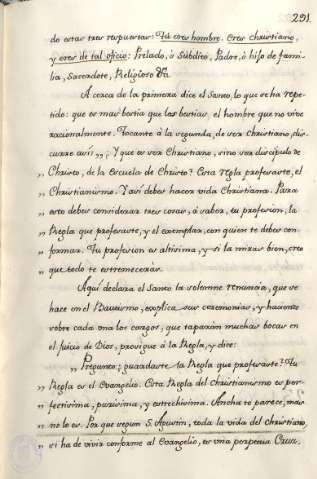 291.
do estas tres respuestas: Tú eres hombre. Eres Christiano,
y eres de tal oficio: Prelado, ó Subdito, Padre, ó hijo de fami-
lia, Sacerdote, Religioso &a.
A cerca de la primera dice el Santo, lo que se ha repe-
tido: que es mas bestia que las bestias, el hombre que no vive
racionalmente. Tocante á la segunda, de ser christiano, dis-
curre asi „ ¿Y que es ser Christiano, sino ser discipulo de
„ Christo, de la Escuela de Christo? Esta regla profesaste, el
„ Christianismo. Y asi debes hacer vida Christiana. Para
„ esto debes considerar tres cosas, á saber, tu profesion, la
„ Regla que profesaste, y el exemplar, con quien te debes con-
„ formar. Tu profesion es altisima, y si la miras bien, creo
„ que todo te estremecerás.
Aqui declara el Santo la solemne renuncia, que se
hace en el Bautismo, explica sus ceremonias, y haciendo
sobre cada una los cargos, que taparán muchas bocas en
el Juicio de Dios, prosigue á la Regla, y dice:
„ Pregunto: ¿guardaste la Regla que profesaste? Tu
„ Regla es el Evangelio. Esta Regla del Christianismo es per-
„ fectisima, purisima, y estrechisima. Ancha te parece, mas
„ no lo es. Por que segun S. Agustin, toda la vida del christiano,
„ si ha de vivir conforme al Evangelio, es una perpetua Cruz.